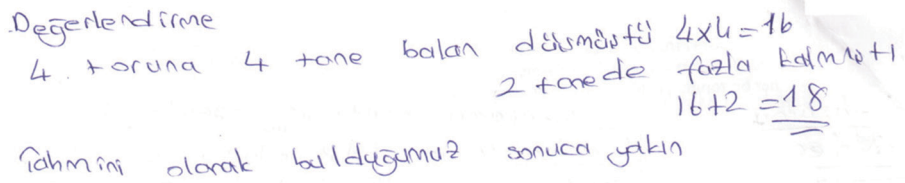 Değerlendirme
4 toruna 4 tane balan düşmüştü 4x4=16
2 tanede fazla kalmıştı
16+2=18
Tahmini olarak bulduğumuz sonuca yakın